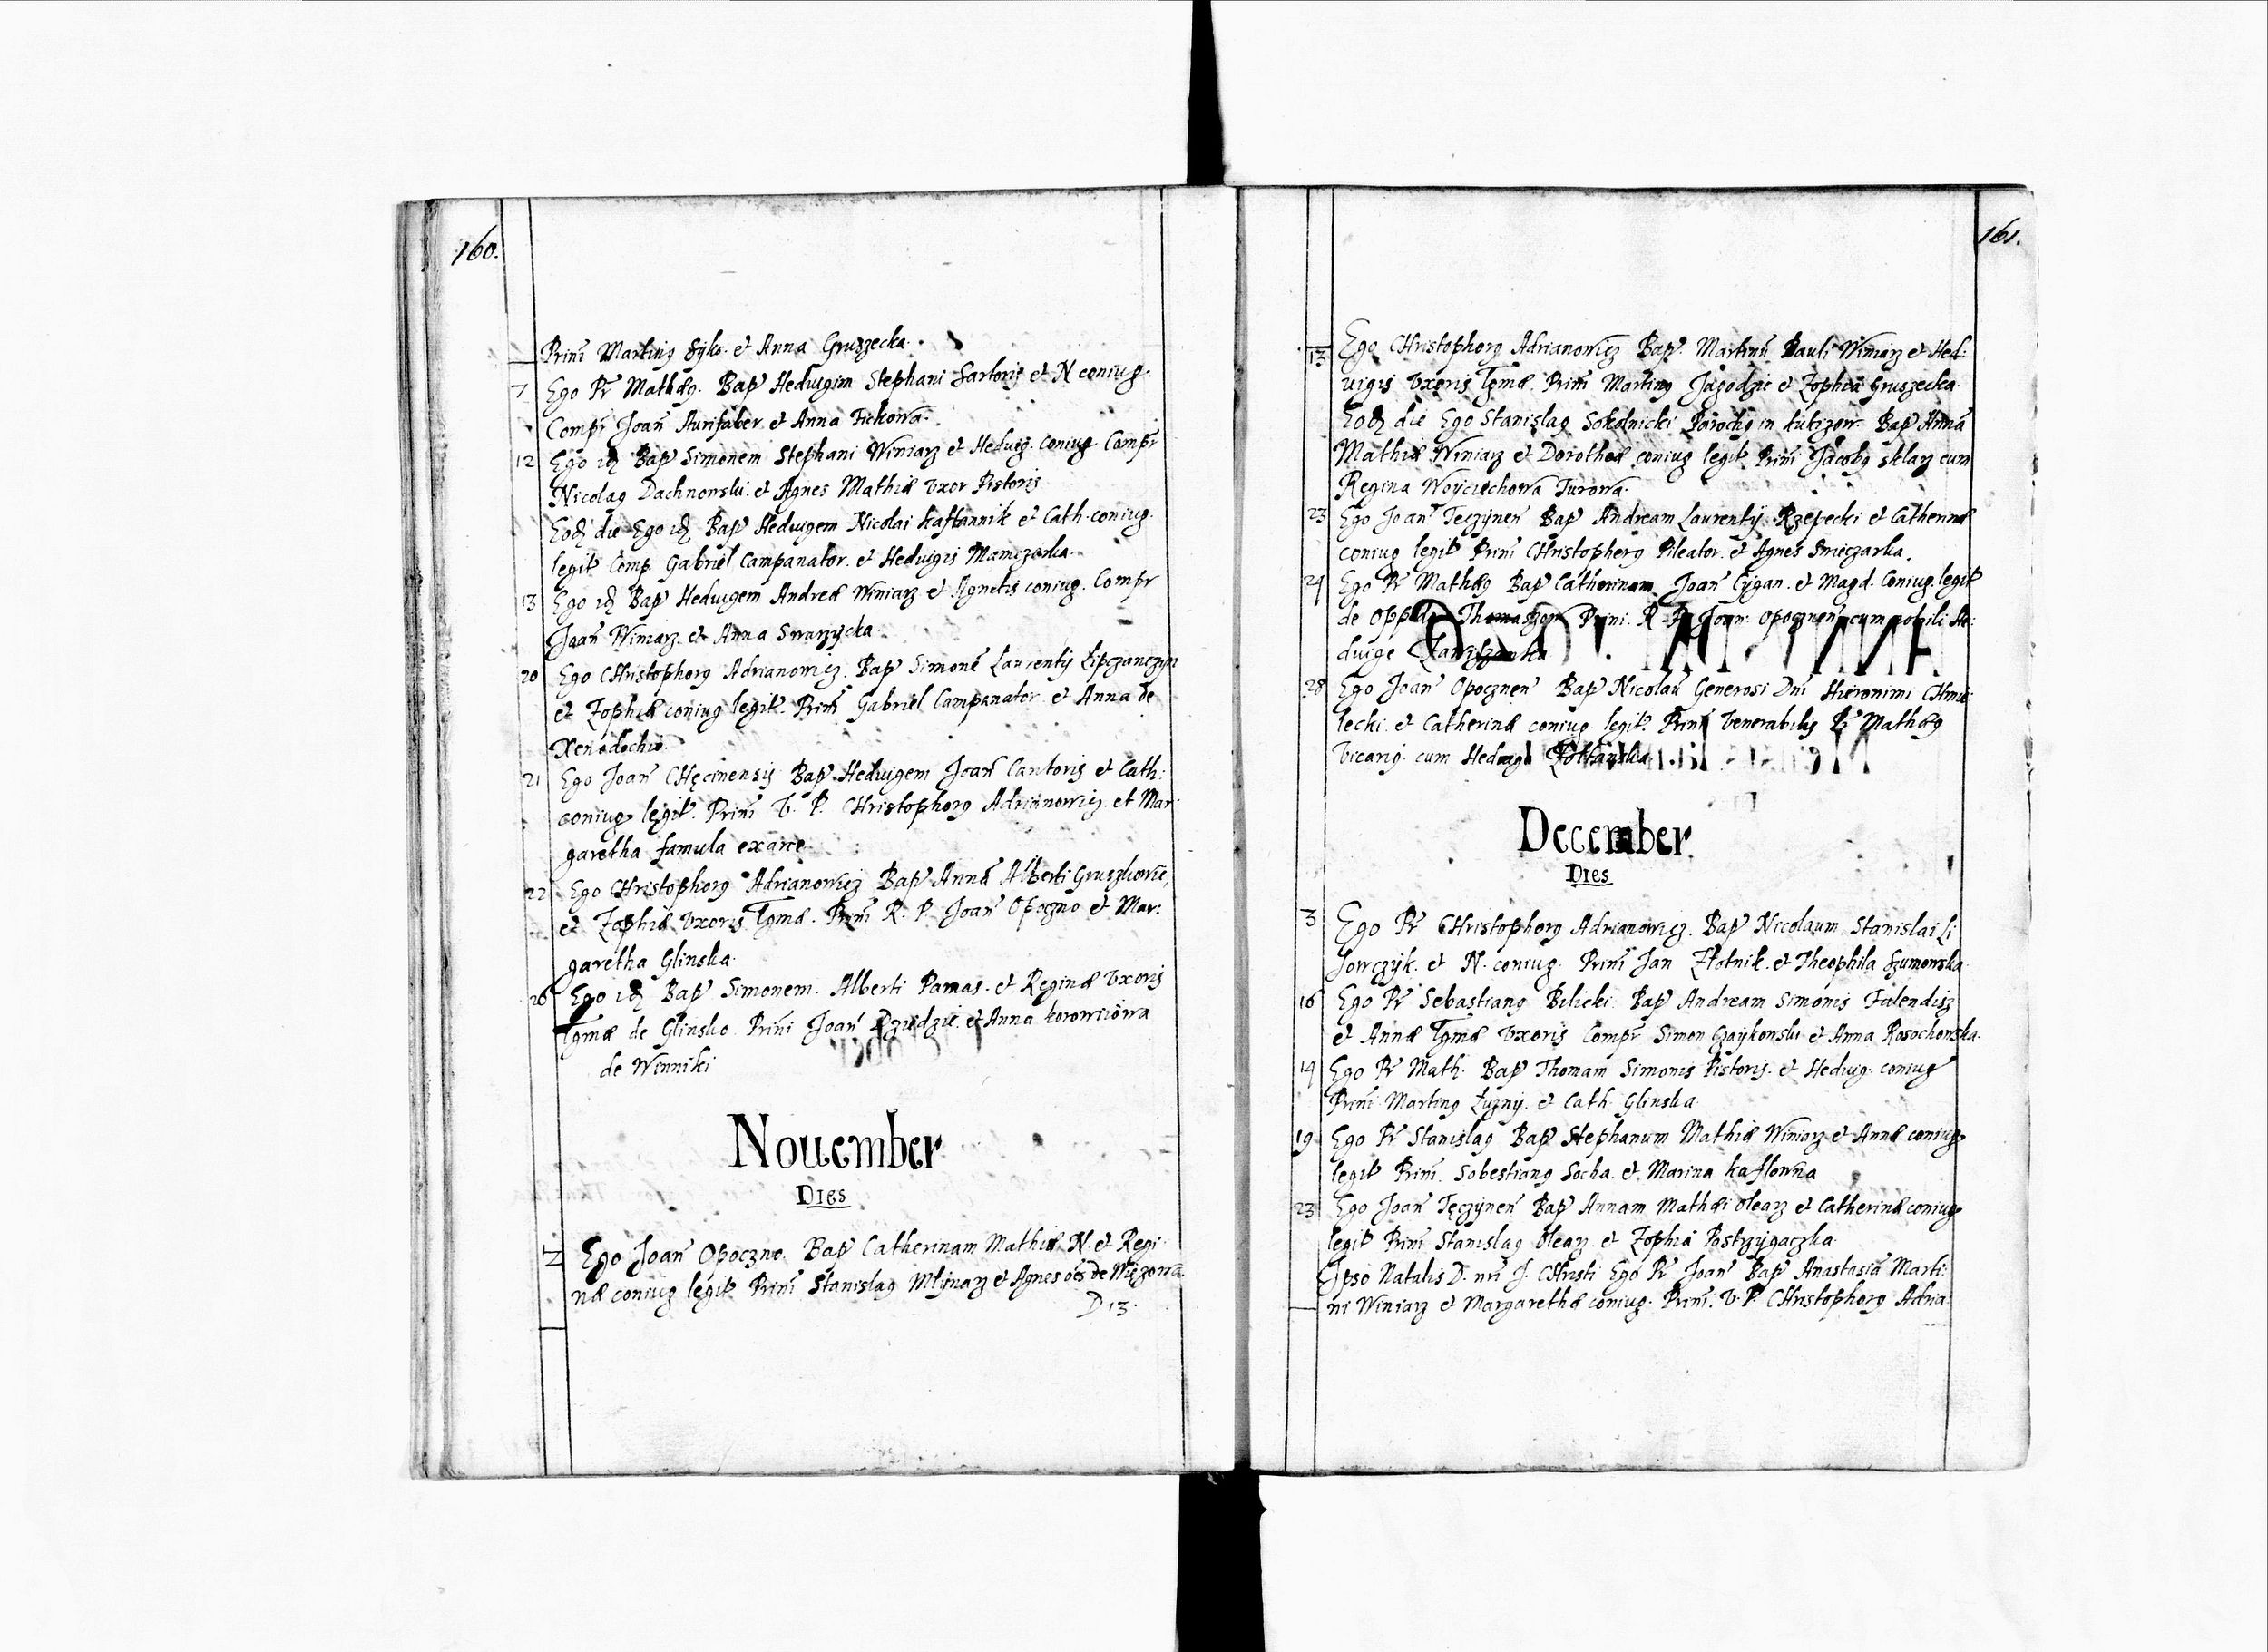 160.
Prini Martinꝯ Syko. et Anna Gruszecka.
7 Ego Pr̃ Mathæꝯ. Bap̃ Heduigim Stephani Sartoris et N coniug.
Comp̃r Joañ Aurifaber. et Anna Fickowa.
12 Ego id̃ Bap̃ Simonem Stephani Winiarz et Heduig. coniug Comp̃r
Nicolaꝯ Dachnowski. et Agnes Mathiæ vxor Pistoris
Eod̃ die Ego id̃ Bap̃ Heduigem Nicolai Kaftannik et Cath. coniug.
legit̃ Comp. Gabriel Campanator. et Heduigis Mamczarka.
13 Ego id̃ Bap̃ Heduigem Andreæ Winiarz et Agnetis coniug. Comp̃r
Joañ Winiarz. et Anna Swarzycka.
20 Ego Christophorꝯ Adrianowicz. Bap̃ Simonẽ Laurentij Lipczanczyn
et Zophiæ coniug legit̃. Prim̃ Gabriel Campanator. et Anna de
Xenodochio.
21 Ego Joañ Chęcinensis Bap̃ Heduigem Joañ Cantoris et Cath:
coniug legit̃. Prim̃ V. P. Christophorꝯ Adrianowicz. et Mar:
garetha famula ex arce.
22 Ego Christophorꝯ Adrianowicz Bap̃ Annã Alberti Gruszkowic,
et Zophiæ vxoris Lgmæ. Prim̃ R. P. Joañ Opoczno et Mar:
garetha Glinska.
26 Ego id̃ Bap̃ Simonem. Alberti Pamas. et Reginæ vxoris
Lgmæ de Glinsko. Prini Joañ Dziedzic. et Anna Korowiiowa
de Winniki
Nouember
Dies
Z Ego Joañ Opoczno. Bap̃ Catherinam Mathiæ N. et Regi
næ coniug legit̃ Prim̃ Stanislaꝯ Mlynarz et Agnes oẽs de Więzowa.
D 13.
161.
13 Ego Christophorꝯ Adrianowicz Bap̃. Martinũ Pauli Winiarz et Hed:
uigis vxoris Lgmæ. Prim̃ Martinꝯ Jagodzic et Zophia Gruszecka.
Eod̃ die Ego Stanislaꝯ Sokolnicki Parochꝯ in Kukizow. Bap̃ Annã
Mathiæ Winiarz et Dorotheæ coniug legit̃ Prim̃ Jacobꝯ sklarz cum
Regina Woyciechowa Turowa.
23 Ego Joañ Teczyneñ Bap̃ Andream Laurentij Rzepecki et Catherinæ
coniug legit̃ Prim̃ Christophorꝯ Pileator. et Agnes Smieczarka.
24 Ego Pr̃ Mathæꝯ Bap̃ Catherinam Joañ Cygan. et Magd. Coniug. legit̃
de Oppido Thomaszow Prini. R. P. Joan: Opoczneñ cum nobili He:
duige
28 Ego Joañ Opocznẽn Bap̃ Nicolaũ Generosi Dñi Hieronimi Chmie
lecki. et Catherinæ coniug. legit̃. Prim̃ Venerabilis Pr̃ Mathæꝯ
Vicariꝯ. cum Heduigi
December
Dies
3 Ego Pr̃ Christophorꝯ Adrianowicz. Bap̃ Nicolaum Stanislai Li
Jowczyk. et N. coniug. Prim̃ Jan Złotnik. et Theophila Szumowska.
16 Ego Pr̃ Sebastianꝯ Bilicki Bap̃ Andream Simonis Falendisz
et Annæ Lgmæ vxoris Comp̃r Simon Czaykowski et Anna Rosochowska.
14 Ego Pr̃ Math. Bap̃ Thomam Simonis Pistoris. et Heduig. coniug
Prim̃ Martinꝯ Luzny. et Cath. Glinska.
19 Ego Pr̃ Stanislaꝯ Bap̃ Stephanum Mathiæ Winiarz et Annæ coniug.
legit̃ Prim̃. Sobestianꝯ Socha. et Marina Kaflowna
23 Ego Joañ Tęczyneñ Bap̃ Annam Mathæi Olearz et Catherinæ coniug.
legit̃ Prim̃ Stanislaꝯ Olearz. et Zophia Postrzygaczka.
Ipso Natalis D. nrĩ J. Christi Ego Pr̃ Joañ Bap̃ Anastasiã Marti:
ni Winiarz et Margarethæ coniug. Prim̃. V. P. Christophorꝯ Adria: